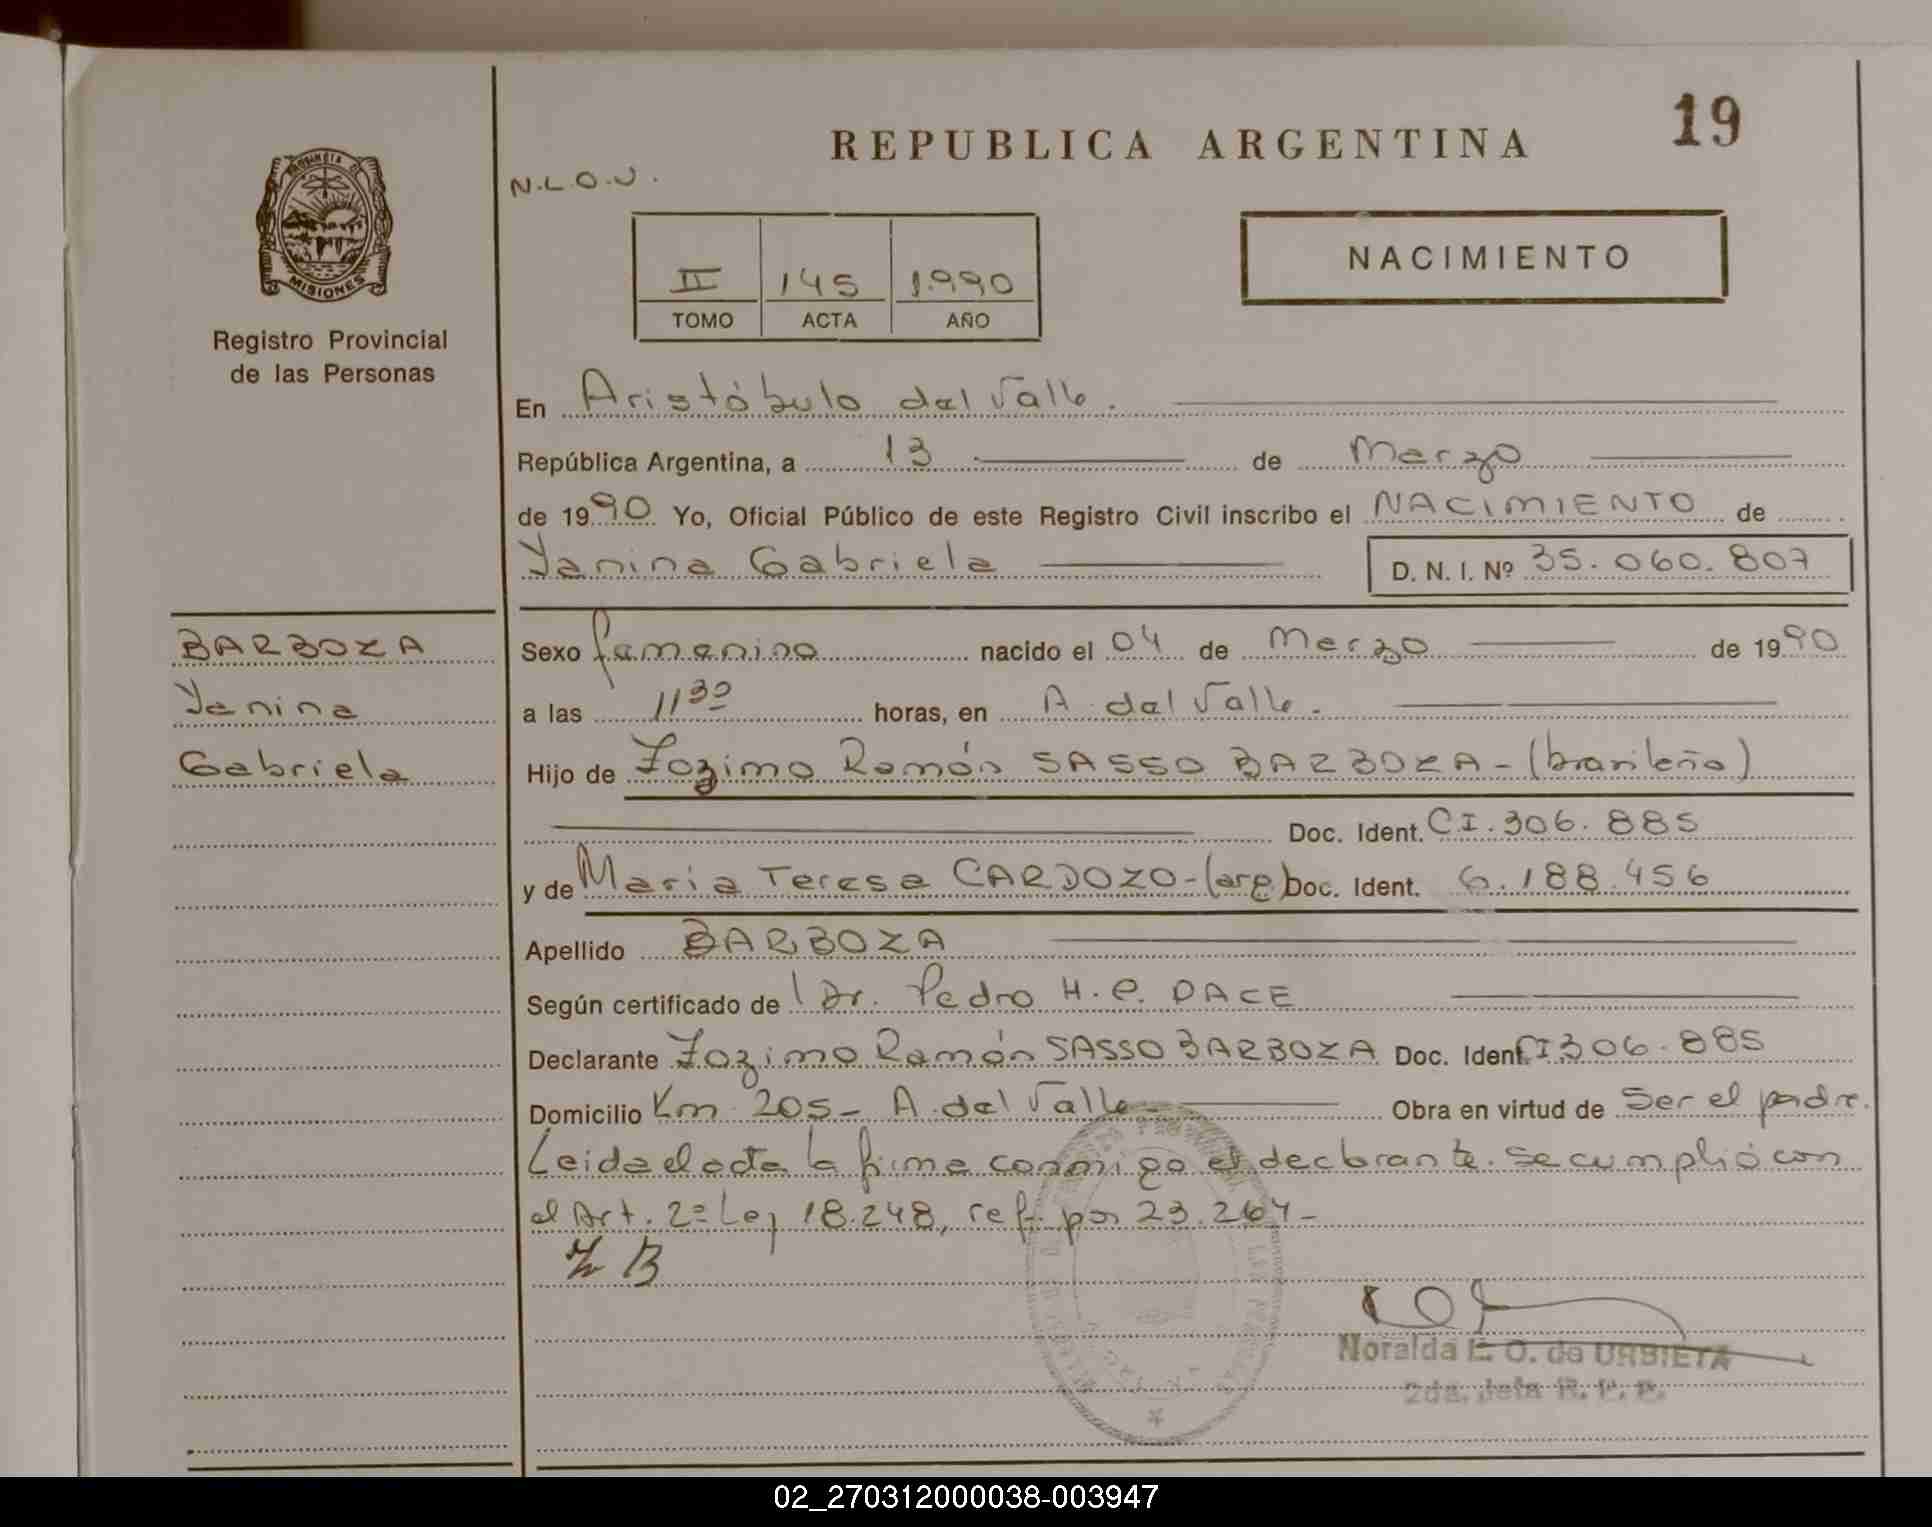 19
REPUBLICA ARGENTINA
N.L.O.U.
PROVINCIA DE
MISIONES
Registro Provincial
de las Personas
II 145 1.990
TOMO ACTA AÑO
NACIMIENTO
En Aristóbulo del Valle.
República Argentina, a 13 de Marzo
de 1990 Yo, Oficial Público de este Registro Civil inscribo el NACIMIENTO de
Yanina Gabriela D. N. I. Nº 35.060.807
BARBOZA
Yanina
Gabriela
Sexo femenino nacido el 04 de Marzo de 1990
a las 11 30 horas, en A. del Valle.
Hijo de Zozimo Ramón SASSO BARBOZA - (brasileño)
Doc. Ident. C.I. 306.885
y de Maria Teresa CARDOZO - (arg) Doc. Ident. 6.188.456
Apellido BARBOZA
Según certificado de Dr. Pedro H. C. DACE
Declarante Zozimo Ramón SASSO BARBOZA Doc. Ident. CI 306.885
Domicilio Km. 205 - A. del Valle - Obra en virtud de ser el padre.
Leida el acta la firma conmigo el declarante. Se cumplió con
el Art. 2º Ley 18.248, ref. por 23.264 -
Z B
Noralda E. O. de URBIETA
2da. Jefa R. P. P.
02_270312000038-003947